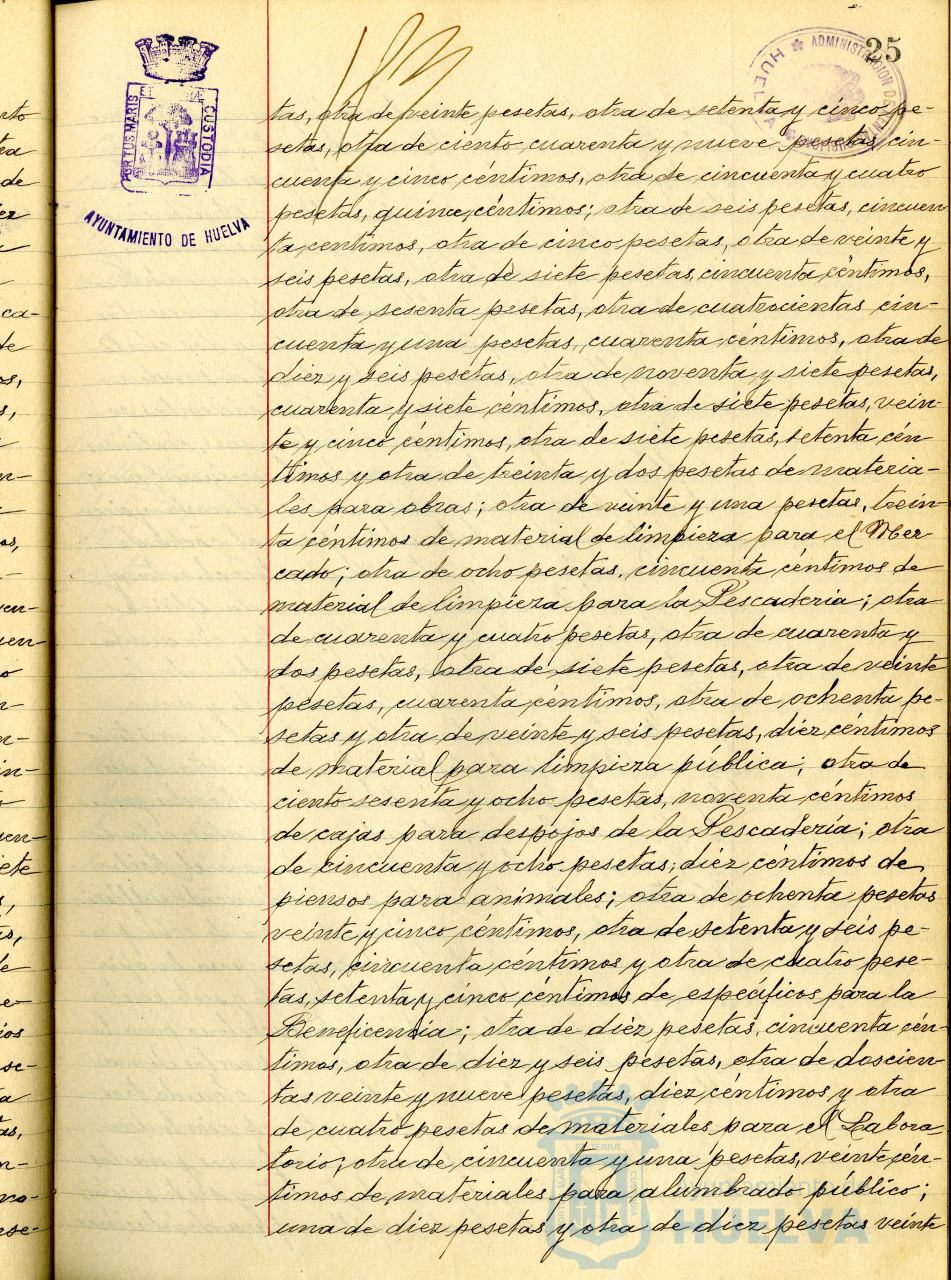 25
ADMINISTRACION DE
HUELVA
PORTUS MARIS
CUSTODIA
AYUNTAMIENTO DE HUELVA
tas, otra de veinte pesetas, otra de setenta y cinco pe-
setas, otra de ciento cuarenta y nueve pesetas, cin-
cuenta y cinco céntimos, otra de cincuenta y cuatro
pesetas, quince céntimos; otra de seis pesetas, cincuen
ta centimos, otra de cinco pesetas, otra de veinte y
seis pesetas, otra de siete pesetas, cincuenta céntimos,
otra de sesenta pesetas, otra de cuatrocientas cin-
cuenta y una pesetas, cuarenta céntimos, otra de
diez y seis pesetas, otra de noventa y siete pesetas,
cuarenta y siete céntimos, otra de siete pesetas, vein-
te y cinco céntimos, otra de siete pesetas, setenta cén
timos y otra de treinta y dos pesetas de materia-
les para obras; otra de veinte y una pesetas, trein-
ta céntimos de material de limpieza para el Mer
cado; otra de ocho pesetas, cincuenta céntimos de
material de limpieza para la Pescaderia; otra
de cuarenta y cuatro pesetas, otra de cuarenta y
dos pesetas, otra de siete pesetas, otra de veinte
pesetas, cuarenta céntimos, otra de ochenta pe-
setas y otra de veinte y seis pesetas, diez céntimos
de material para limpieza pública; otra de
ciento sesenta y ocho pesetas, noventa céntimos
de cajas para despojos de la Pescadería; otra
de cincuenta y ocho pesetas, diez céntimos de
piensos para animales; otra de ochenta pesetas
veinte y cinco céntimos, otra de setenta y seis pe-
setas, cincuenta céntimos y otra de cuatro pese-
tas, setenta y cinco céntimos de específicos para la
Beneficencia; otra de diez pesetas, cincuenta cén-
timos, otra de diez y seis pesetas, otra de doscien-
tas veinte y nueve pesetas, diez céntimos y otra
de cuatro pesetas de materiales para el Labora-
torio; otra de cincuenta y una pesetas, veinte cén-
timos de materiales para alumbrado público;
una de diez pesetas y otra de diez pesetas veinte
ayuntamiento de
HUELVA